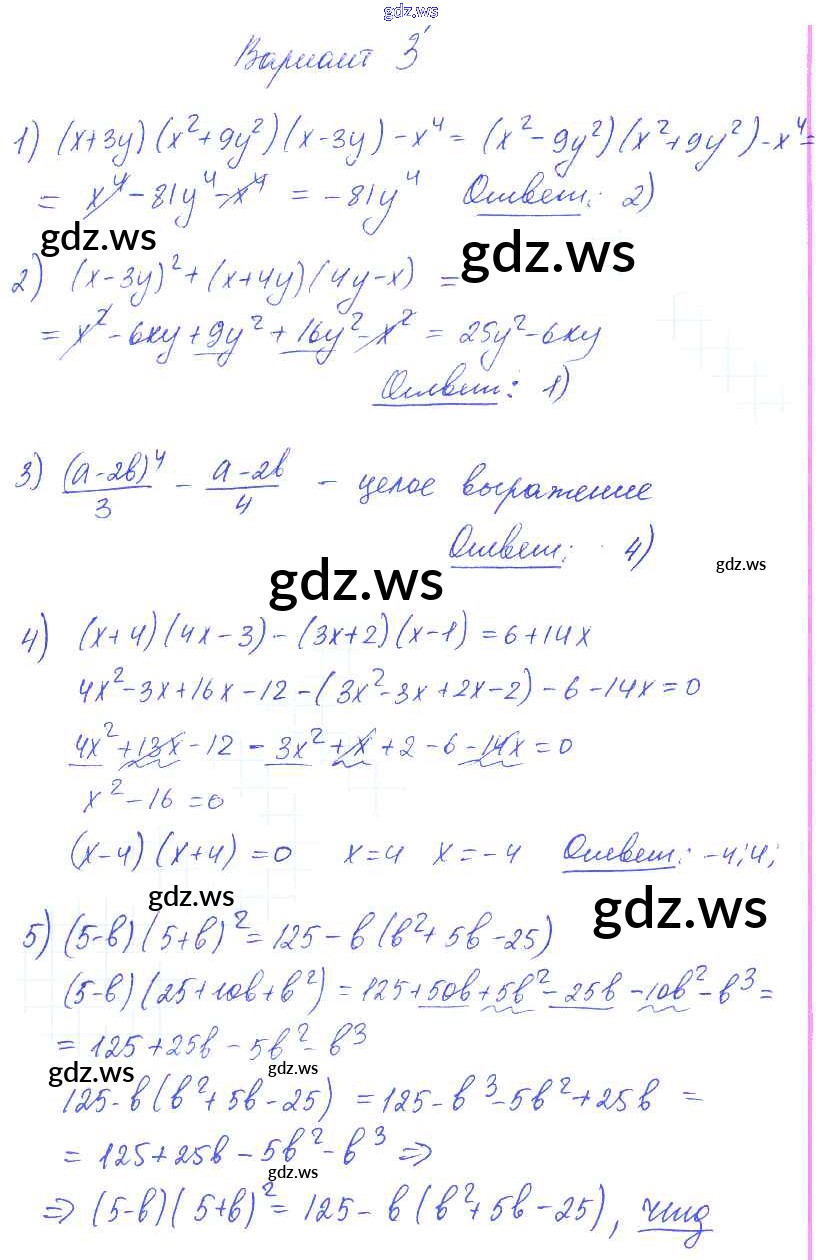 gdz.ws
Вариант 3
1) (x+3y)(x²+9y²)(x-3y)-x⁴= (x²-9y²)(x²+9y²)-x⁴=
= x⁴-81y⁴-x⁴ = -81y⁴ Ответ: 2)
gdz.ws
gdz.ws
2) (x-3y)²+(x+4y)(4y-x) =
= x²-6xy+9y²+16y²-x² = 25y²-6xy
Ответ: 1)
3) (a-2b)⁴/3 - a-2b/4 - целое выражение
Ответ: 4)
gdz.ws
gdz.ws
4) (x+4)(4x-3)-(3x+2)(x-1)=6+14x
4x²-3x+16x-12-(3x²-3x+2x-2)-6-14x=0
4x²+13x-12-3x²+x+2-6-14x=0
x²-16=0
(x-4)(x+4)=0 x=4 x=-4 Ответ: -4;4;
gdz.ws
gdz.ws
5) (5-b)(5+b)²=125-b(b²+5b-25)
(5-b)(25+10b+b²)=125+50b+5b²-25b-10b²-b³=
= 125+25b-5b²-b³
gdz.ws
gdz.ws
125-b(b²+5b-25) =125-b³-5b²+25b =
= 125+25b-5b²-b³ ⇒
gdz.ws
⇒ (5-b)(5+b)²=125-b(b²+5b-25), чтд